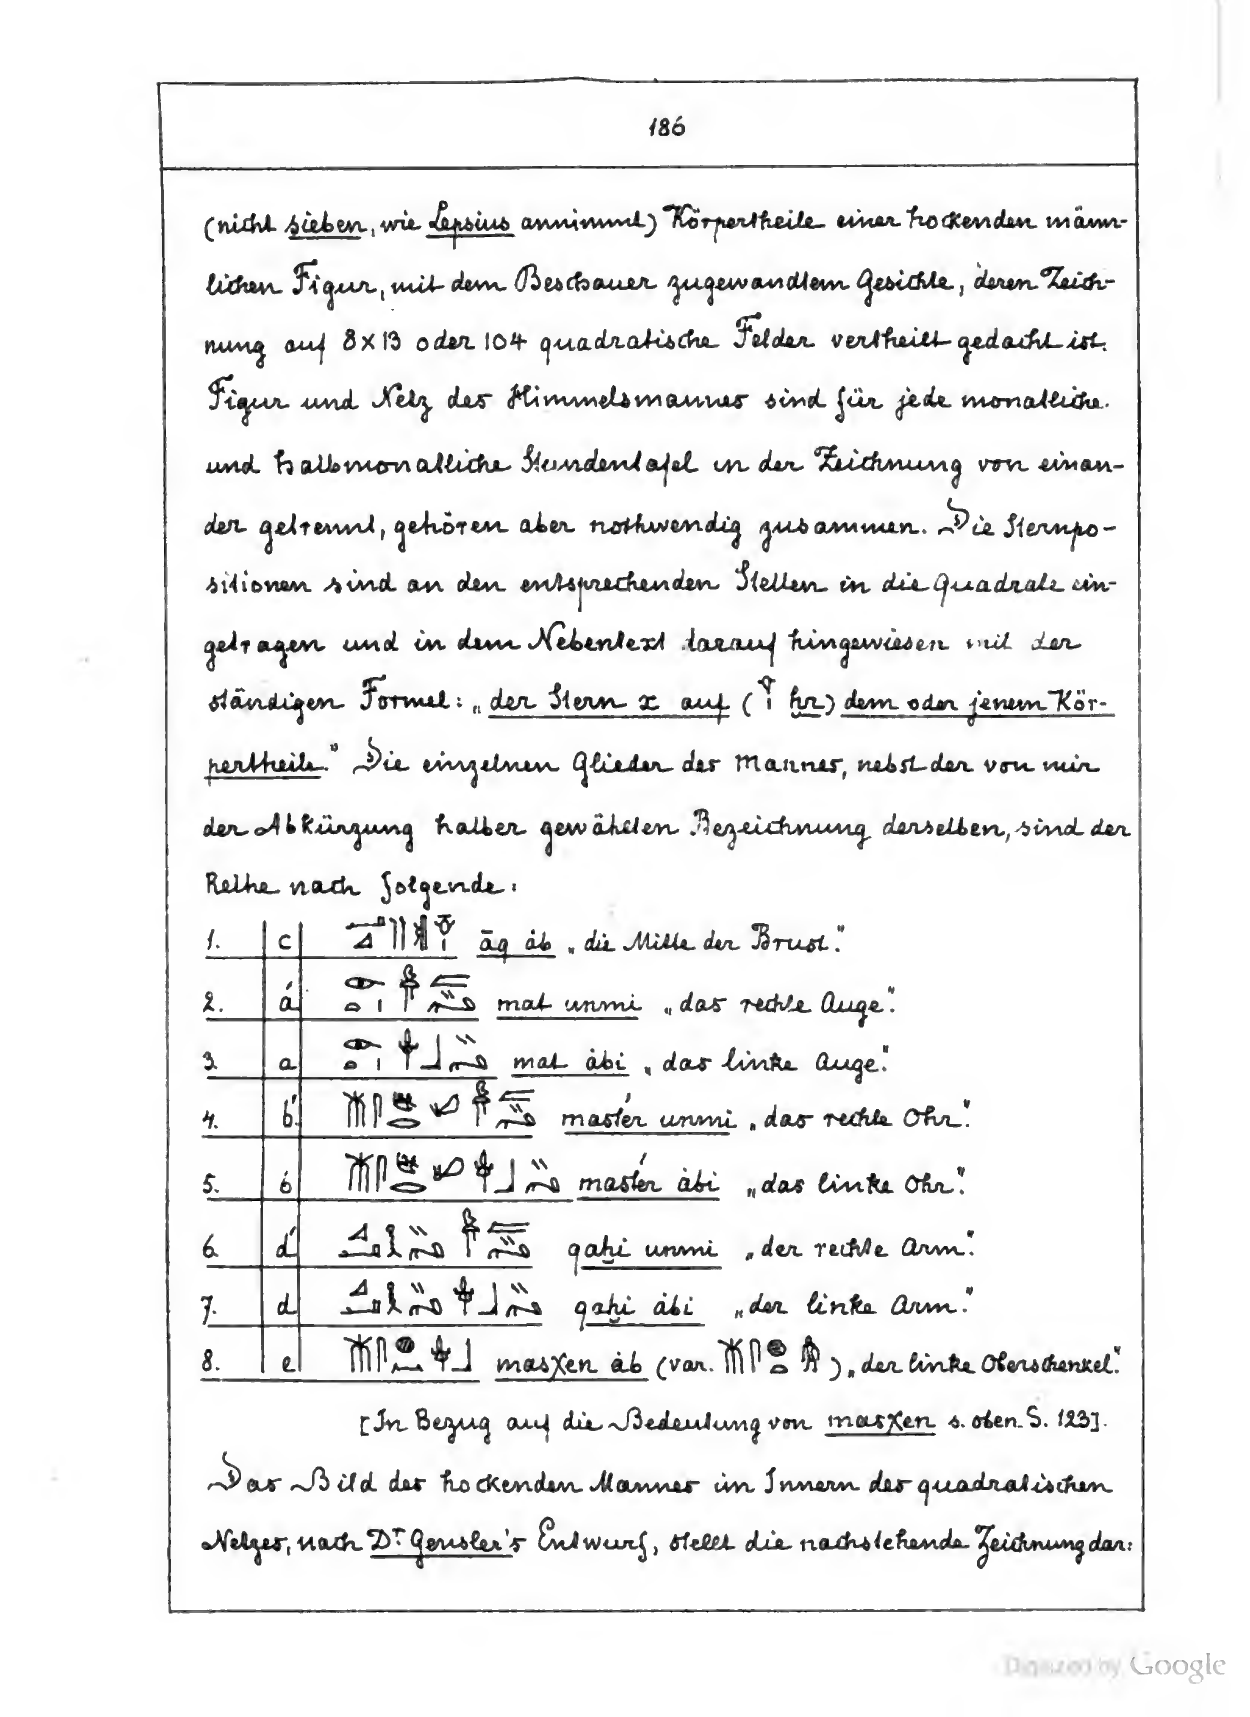 186
(nicht sieben, wie Lepsius annimmt) Körpertheile einer hockenden männ-
lichen Figur, mit dem Beschauer zugewandtem Gesichte, deren Zeich-
nung auf 8x13 oder 104 quadratische Felder vertheilt gedacht ist.
Figur und Netz des Himmelsmannes sind für jede monatliche
und halbmonatliche Stundentafel in der Zeichnung von einan-
der getrennt, gehören aber nothwendig zusammen. Die Sternpo-
sitionen sind an den entsprechenden Stellen in die Quadrate ein-
getragen und in dem Nebentext darauf hingewiesen mit der
ständigen Formel: „der Stern x auf ( ḥr) dem oder jenem Kör-
pertheile." Die einzelnen Glieder des Mannes, nebst der von mir
der Abkürzung halber gewählten Bezeichnung derselben, sind der
Reihe nach folgende:
1. c āq àb „die Mitte der Brust".
2. á mat unmi „das rechte Auge".
3. a mat àbi „das linke Auge".
4. b́ maśter unmi „das rechte Ohr".
5. b maśter àbi „das linke Ohr".
6. d́ qaḥi unmi „der rechte Arm".
7. d qaḥi àbi „der linke Arm".
8. e masχen àb (var. ) „der linke Oberschenkel".
[In Bezug auf die Bedeutung von masχen s. oben S. 123].
Das Bild des hockenden Mannes im Innern des quadratischen
Netzes, nach Dr. Gensler's Entwurf, stellt die nachstehende Zeichnung dar:
Digitized by Google